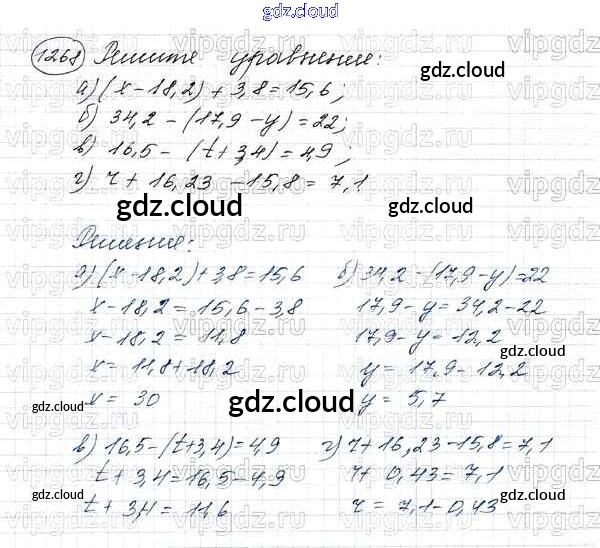 gdz.cloud
1268 Решите уравнение:
а) (x-18,2)+3,8=15,6;
б) 34,2-(17,9-y)=22;
в) 16,5-(t+3,4)=4,9;
г) r+16,23-15,8=7,1
gdz.cloud
gdz.cloud
gdz.cloud
gdz.cloud
Решение:
а) (x-18,2)+3,8=15,6
x-18,2=15,6-3,8
x-18,2=11,8
x=11,8+18,2
x=30
б) 34,2-(17,9-y)=22
17,9-y=34,2-22
17,9-y=12,2
y=17,9-12,2
y=5,7
gdz.cloud
gdz.cloud
gdz.cloud
в) 16,5-(t+3,4)=4,9
t+3,4=16,5-4,9
t+3,4=11,6
г) r+16,23-15,8=7,1
r+0,43=7,1
r=7,1-0,43
gdz.cloud
gdz.cloud